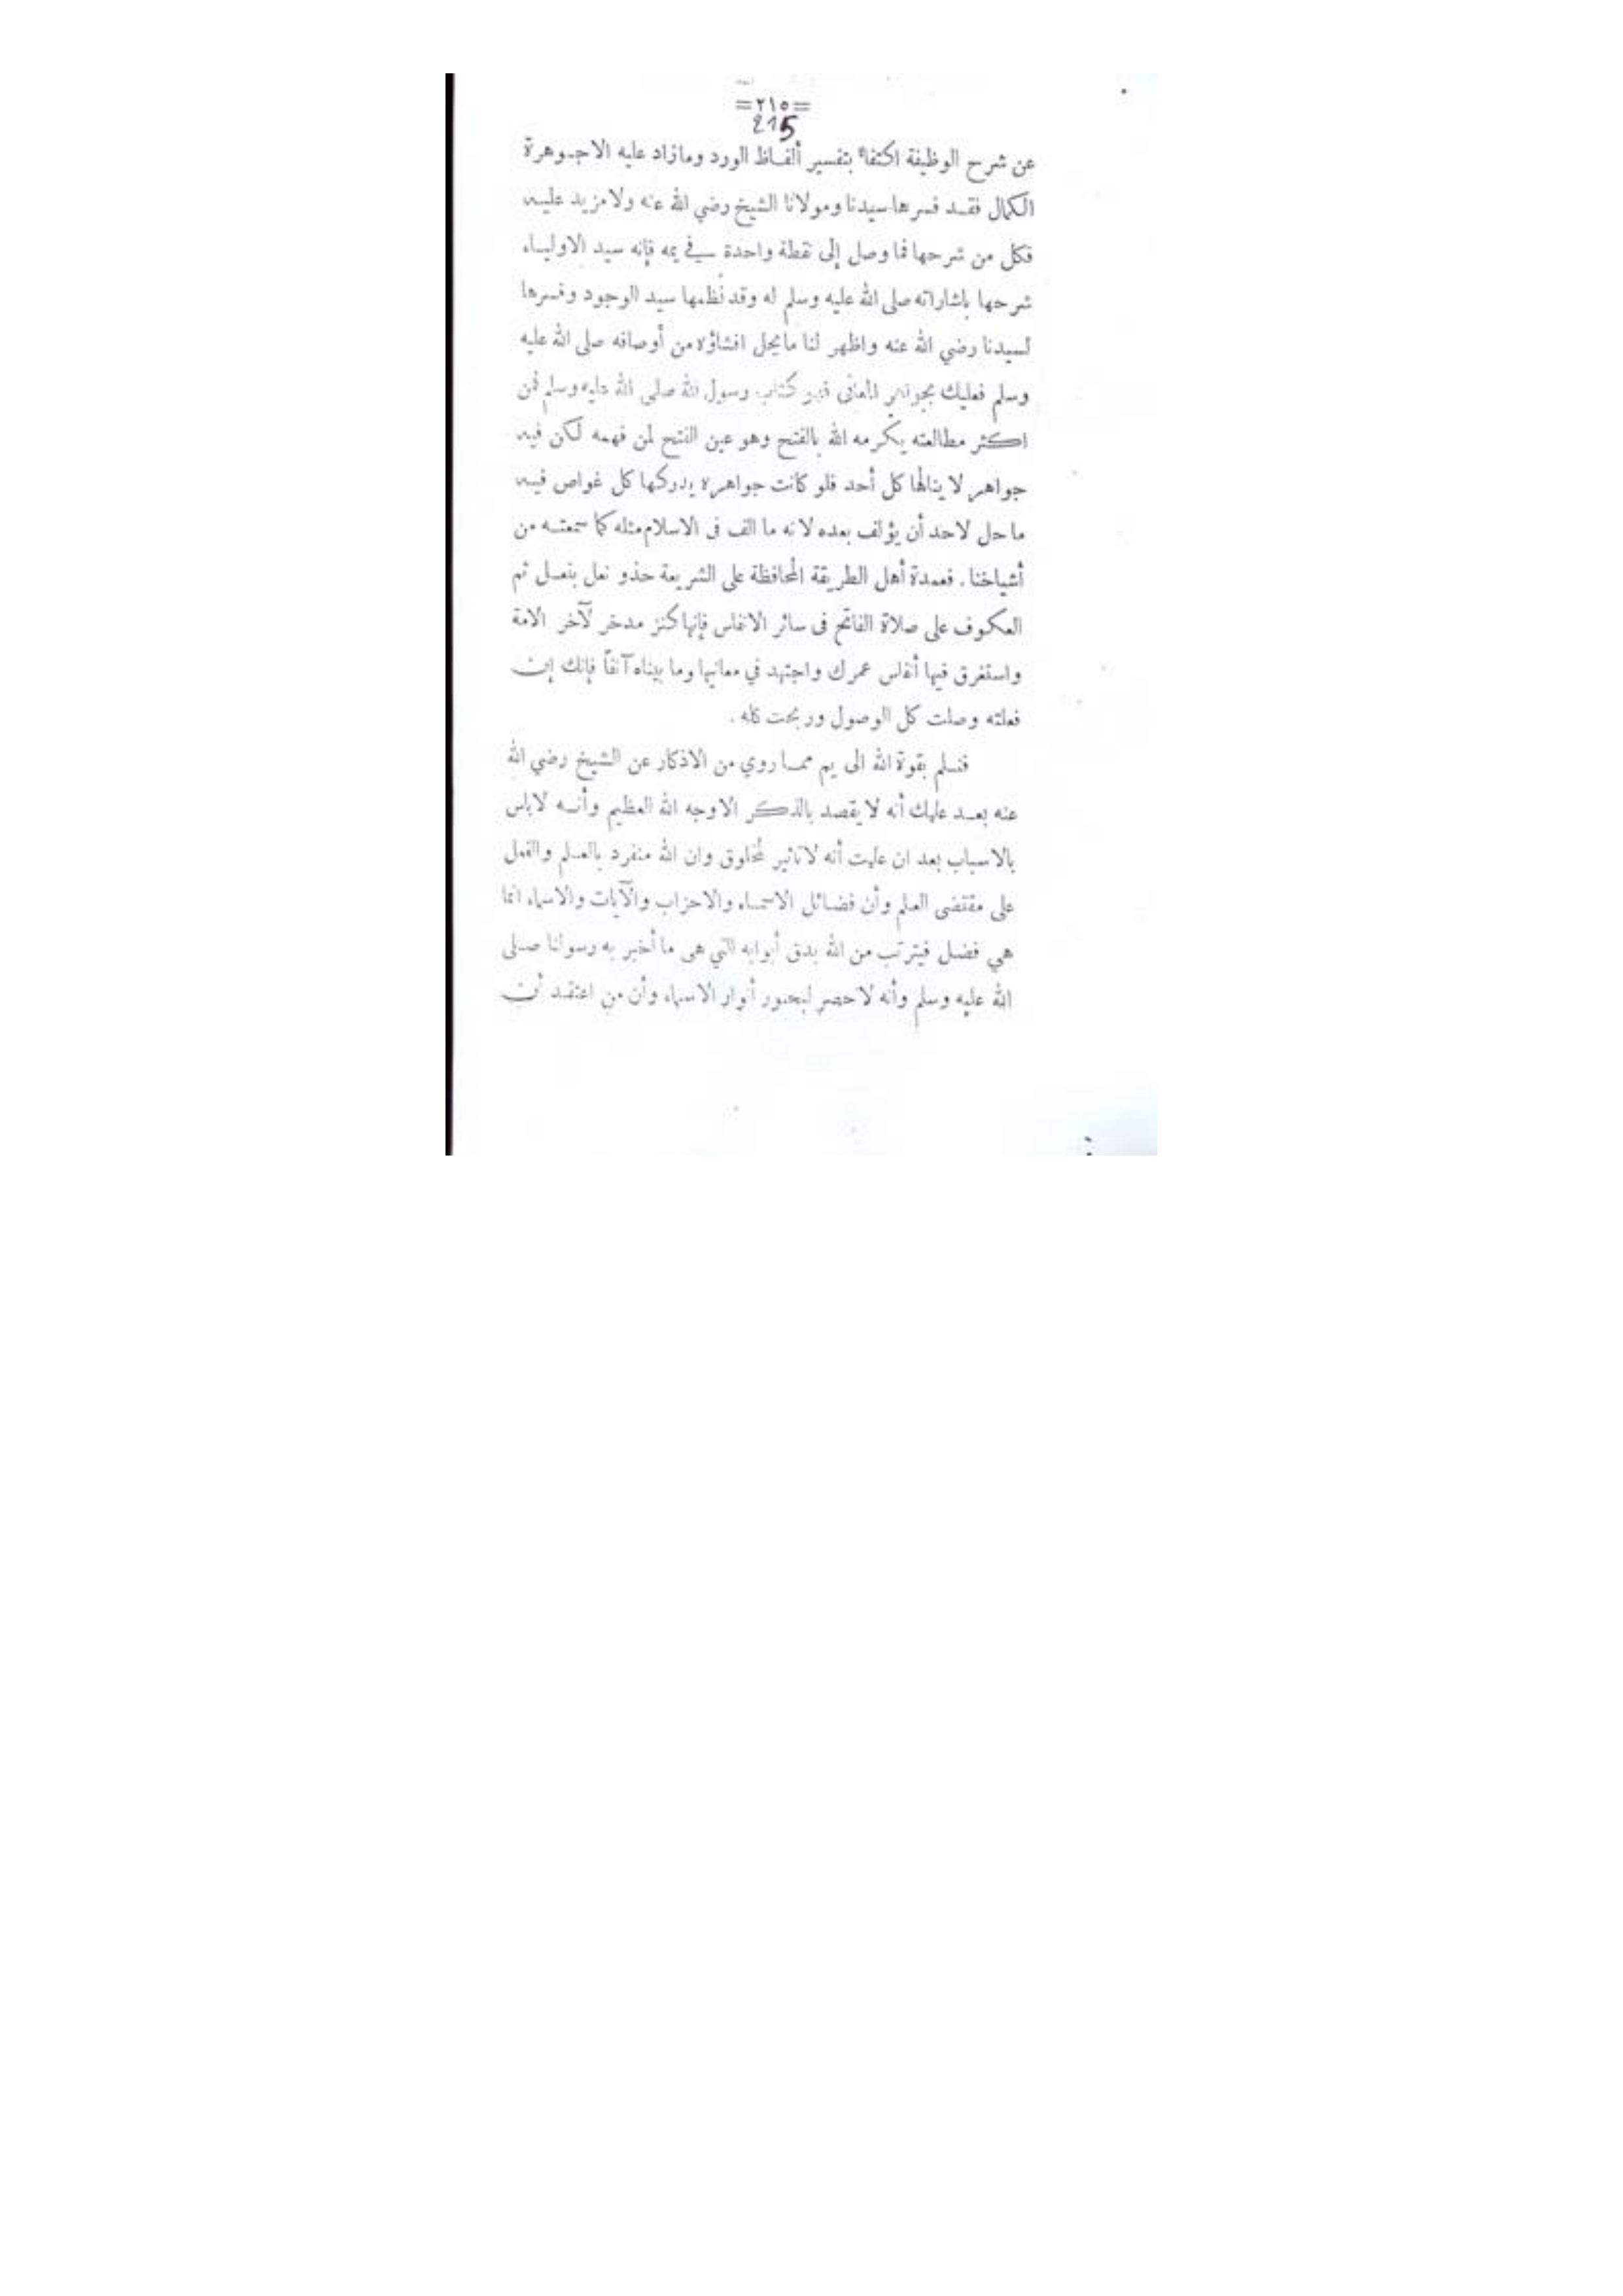 =٢١٥=
215
عن شرح الوظيفة اكتفاء بتفسير ألفاظ الورد وما زاد عليه الا جوهرة
الكمال فقد فسرها سيدنا ومولانا الشيخ رضي الله عنه ولا مزيد عليه
فكل من شرحها فما وصل إلى نقطة واحدة في يمه فإنه سيد الاولياء
شرحها باشاراته صلى الله عليه وسلم له وقد نظمها سيد الوجود وفسرها
لسيدنا رضي الله عنه واظهر لنا ما يحل افشاؤه من أوصافه صلى الله عليه
وسلم فعليك بجواهر المعانى فهو كتاب رسول الله صلى الله عليه وسلم فمن
اكثر مطالعته يكرمه الله بالفتح وهو عين الفتح لمن فهمه لكن فيه
جواهر لا ينالها كل أحد فلو كانت جواهره يدركها كل غواص فيه
ما حل لاحد أن يؤلف بعده لانه ما الف فى الاسلام مثله كما سمعته من
أشياخنا. فعمدة أهل الطريقة المحافظة على الشريعة حذو نعل بنعل ثم
العكوف على صلاة الفاتح فى سائر الانفاس فإنها كنز مدخر لآخر الامة
واستغرق فيها أنفاس عمرك واجتهد في معانيها وما بيناه آنفاً فإنك إن
فعلته وصلت كل الوصول وربحت كله.
فنسلم بقوة الله الى يم مما روي من الاذكار عن الشيخ رضي الله
عنه بعد علمك أنه لا يقصد بالذكر الا وجه الله العظيم وأنه لا بأس
بالاسباب بعد ان علمت أنه لا تاثير لمخلوق وان الله منفرد بالعلم والفعل
على مقتضى العلم وأن فضائل الاسماء والاحزاب والآيات والاسماء انما
هي فضل فيترتب من الله بدق أبوابه التي هى ما أخبر به رسولنا صلى
الله عليه وسلم وأنه لا حصر لبحور أنوار الاسماء وأن من اعتقد أن